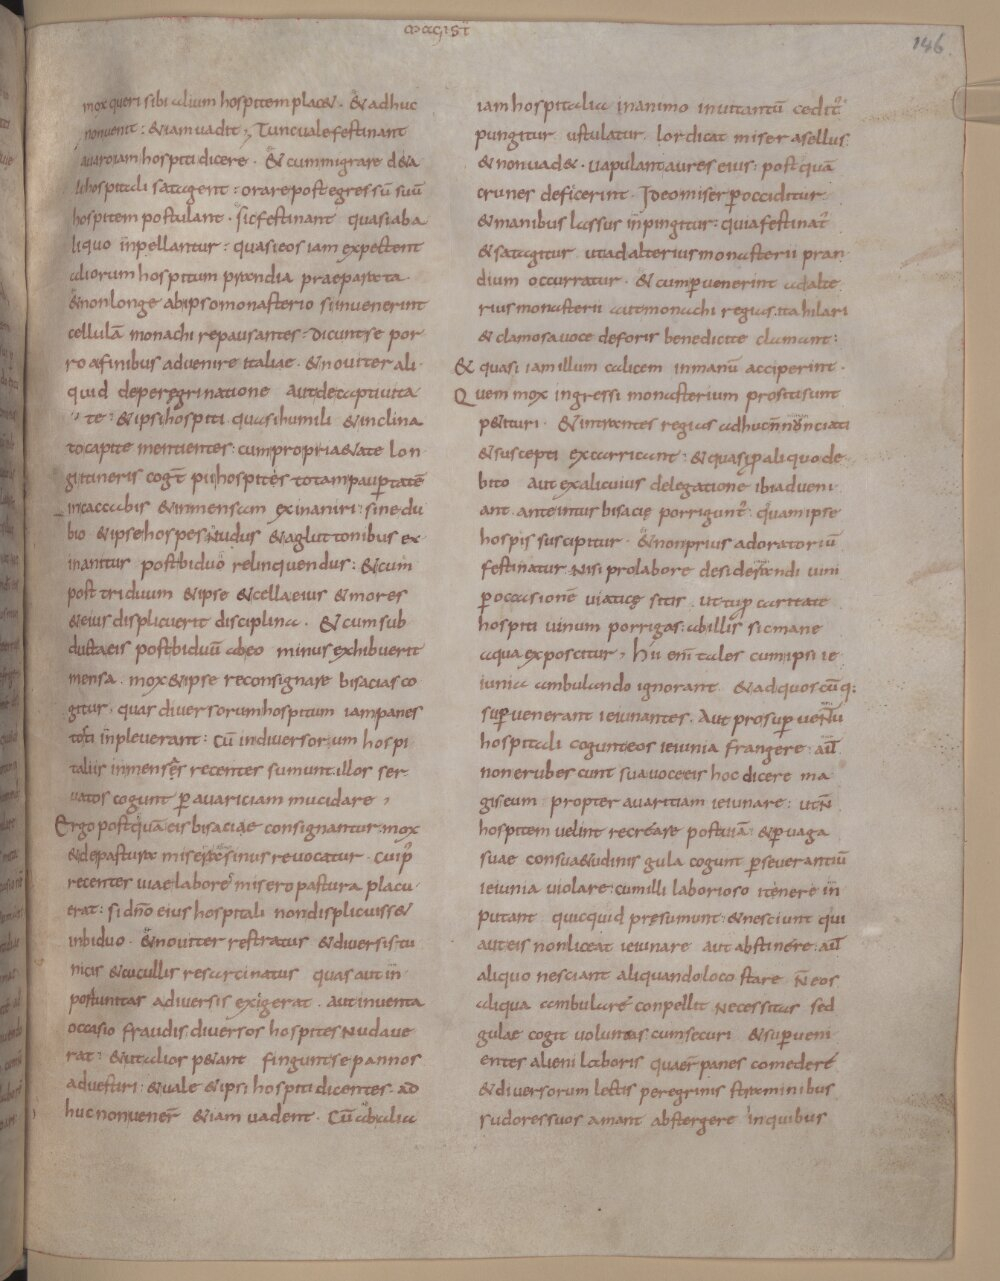 magistri
146
mox queri sibi alium hospitem placet. Et adhuc
non uenit: & iam uadit; Tunc uale festinant
auaro iam hospiti dicere. Et cum migrare de ta
li hospitali satagent: orare post egressū suū
hospitem postulant. sic festinant quasi ab a
liquo inpellantur: quasi eos iam expectent
aliorum hospitum prandia praeparata.
& non longe ab ipso monasterio si inuenerint
cellulā monachi repausantes: dicunt se por
ro a finibus aduenire italiae. & nouiter ali
quid de peregrinatione aut de captiuita
te: & ipsi hospiti quasi humili & inclina
to capite mentientes: cum propria &ate lon
gi itineris cogt̄ pii hospites totam paup̄tatē
in caccabis & in mensam exinaniri: sine du
bio & ipse hospes nudus & a gluttonibus ex
inanitur post biduo relinquendus: & cum
post triduum & ipse & cella eius & mores
& eius displicuerit disciplina. Et cum sub
ducta eis post biduū ab eo minus exhibuerit
mensa. mox & ipse reconsignare bisacias co
gitur. quas diuersorum hospitum iam panes
toti inpleuerant: Cū in diuersorum hospi
taliis in mensis recenter sumunt. illos ser
uatos cogunt p̄ auariciam mucidare;
Ergo postquā eis bisaciae consignantur. mox
& de pastura miser asinus reuocatur. cui p̄
recenter uiae labore misero pastura placu
erat: si dn̄o eius hospitali non displicuisse&
in biduo. & nouiter restratus & diuersis tu
nicis & cucullis resarcinatus quas aut in
postunitas a diuersis exigerat. aut inuenta
occasio fraudis. diuersos hospites nudaue
rat: & ut alios p&ant fingunt se pannos
aduestiri: & uale & ipsi hospiti dicentes. ad
huc non uener̄ & iam uadent. Cū ab alia
iam hospitalia in animo inuitantū cedit̄
pungitur ustulatur lordicat miser asellus
& non uad&. uapulant aures eius: postquā
crunes deficerint. Ideo miser p̄occiditur
& manibus lassus inpingitur: quia festinat̄
& satagitur ut ad alterius monasterii pran
dium occurratur. & cum p̄uenerint ad alte
rius monasterii aut monachi regias. ita hilari
& clamosa uoce de foris benedicite clamant:
& quasi iam illum calicem in manū acciperint.
Quem mox ingressi monasterium prositi sunt
p&ituri. & intrantes regias adhuc nonciati
& suscepti excarricant: & quasi p̄ aliquo de
bito aut ex alicuius delegatione ibi adueni
ant. ante intus bisacię porriguntʼ. quam ipse
hospis suscipitur. & non prius ad oratoriū
festinatur. nisi pro labore desiderandi uini
p̄ occasionē uiaticę sitis. ut tu p̄ caritate
hospiti uinum porrigas: ab illis sic mane
aqua exposcitur; hii em̄ tales cum ipsi ie
iunia ambulando ignorant. & ad quoscūq;
sup̄uenerant ieiunantes. Aut pro sup̄uenientū
hospitali cogunt eos ieiunia frangere: aut
non erubescunt sua uoce eis hoc dicere ma
gis eum propter auaritiam ieiunare: ut n̄
hospitem uelint recreare posituā: & p̄ uaga
suae consu&udinis gula cogunt p̄seuerantiū
ieiunia uiolare: cum illi laborioso itenere in
putant quicquid presumunt: & nesciunt qui
aut eis non liceat ieiunare aut abstinere: aut
aliquo nesciant aliquando loco stare. N̄ eos
aliqua ambulare conpellit necessitas sed
gulae cogit uoluntas. cum securi & sup̄ueni
entes alieni laboris quaer̄ panes comedere
& diuersorum lectis peregrinis straminibus
sudores suos amant abstergere in quibus